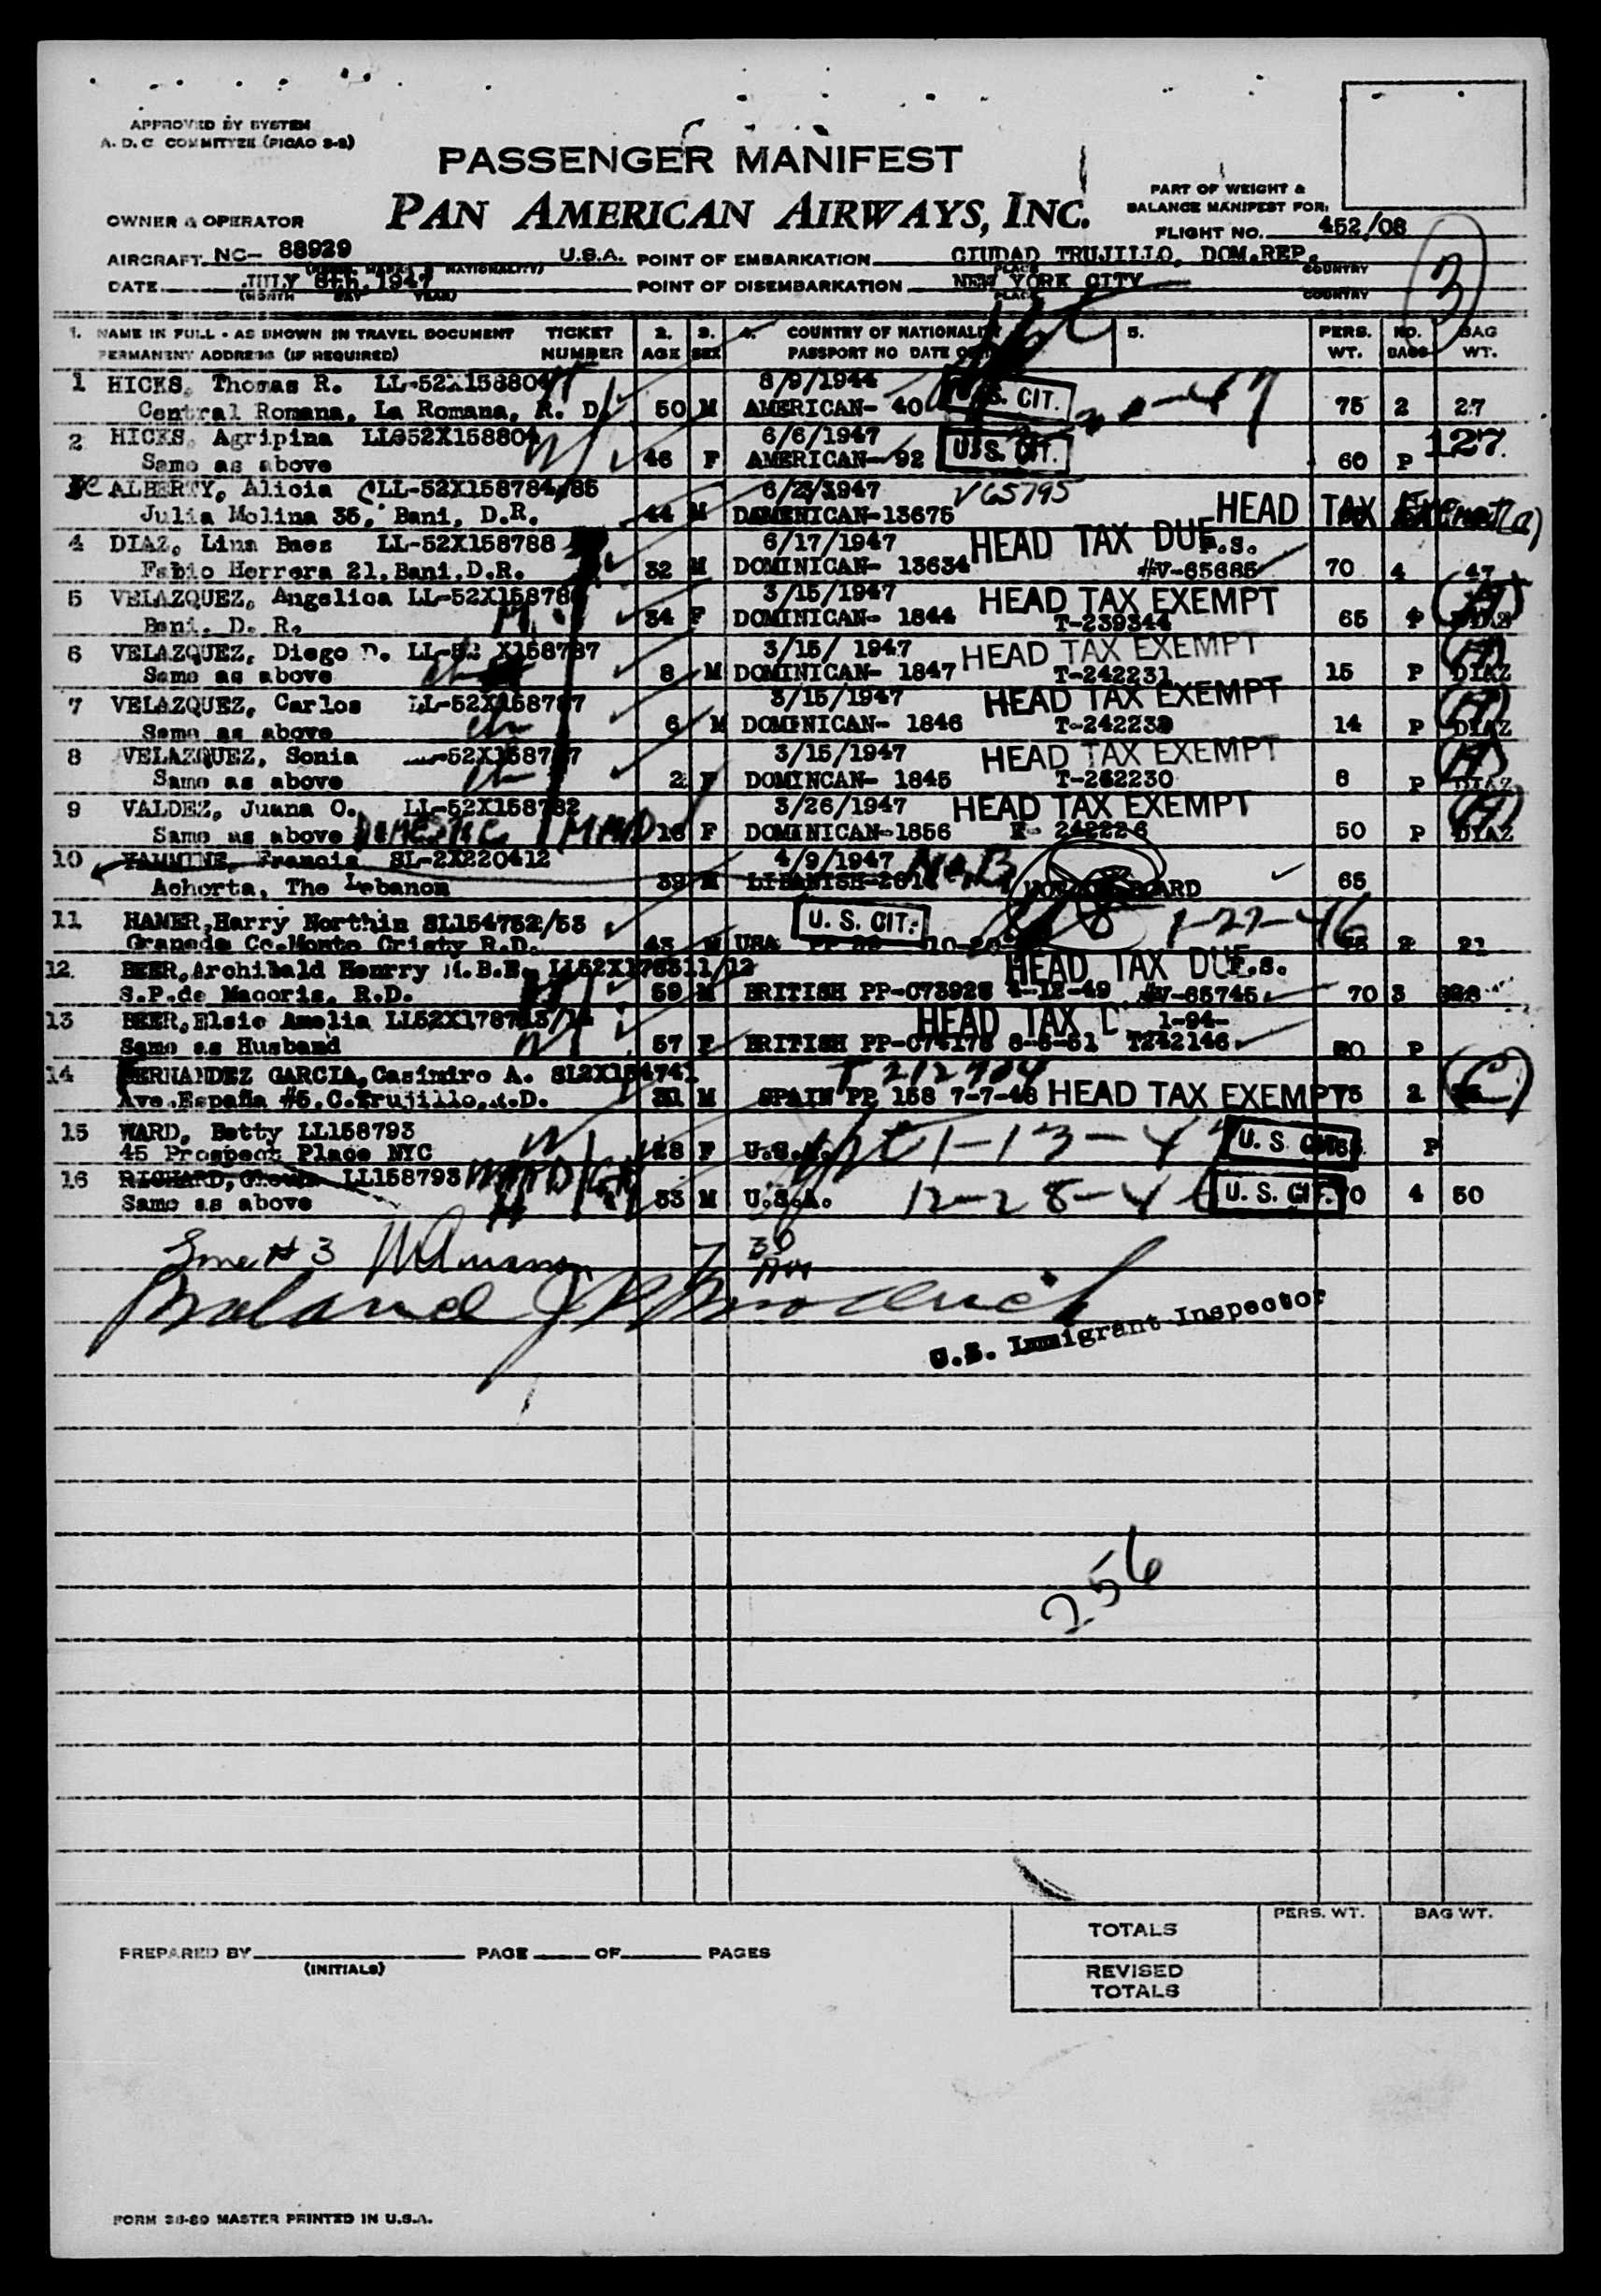 APPROVED BY SYSTEM
A. D. C. COMMITTEE (PICAO S-2)
PASSENGER MANIFEST
PAN AMERICAN AIRWAYS, INC.
PART OF WEIGHT &
BALANCE MANIFEST FOR:
OWNER & OPERATOR
FLIGHT NO. 452/08
AIRCRAFT NC- 88929 U.S.A. POINT OF EMBARKATION CIUDAD TRUJILLO, DOM.REP.
NATIONALITY) PLACE COUNTRY
DATE JULY 8th, 1947 POINT OF DISEMBARKATION NEW YORK CITY
(MONTH DAY YEAR) PLACE COUNTRY
3
1. NAME IN FULL - AS SHOWN IN TRAVEL DOCUMENT TICKET 2. 3. 4. COUNTRY OF NATIONALITY 5. PERS. NO. BAG
PERMANENT ADDRESS (IF REQUIRED) NUMBER AGE SEX PASSPORT NO DATE WT. BAGS WT.
1 HICKS, Thomas R. LL-52X158804 8/9/1944
Central Romana, La Romana, R. D. 50 M AMERICAN- 40 U.S. CIT. 75 2 27
2 HICKS, Agripina LL-52X158804 6/6/1947 127
Same as above 46 F AMERICAN- 92 U.S. CIT. 60 P
ALBERTY, Alicia LL-52X158784/85 6/23/1947 V65795
Julia Molina 35, Bani, D.R. 44 M DOMINICAN-13675 HEAD TAX Exempt(a)
4 DIAZ, Lina Baez LL-52X158788 6/17/1947 HEAD TAX DUE P.S.
Fabio Herrera 21, Bani, D.R. 32 M DOMINICAN- 13634 #V-65685 70 4 47
5 VELAZQUEZ, Angelica LL-52X15878 3/15/1947 HEAD TAX EXEMPT
Bani, D. R. 34 F DOMINICAN- 1844 T-239344 65 P
6 VELAZQUEZ, Diego D. LL-52 X158787 3/15/ 1947 HEAD TAX EXEMPT
Same as above 8 M DOMINICAN- 1847 T-242231 15 P DIAZ
7 VELAZQUEZ, Carlos LL-52X158787 3/15/1947 HEAD TAX EXEMPT
Same as above 6 M DOMINICAN- 1846 T-242232 14 P DIAZ
8 VELAZQUEZ, Sonia -52X158787 3/15/1947 HEAD TAX EXEMPT
Same as above 2 F DOMINCAN- 1845 T-242230 8 P DIAZ
9 VALDEZ, Juana O. LL-52X158782 3/26/1947 HEAD TAX EXEMPT
Same as above DOMESTIC 16 F DOMINICAN-1856 50 P DIAZ
10 YAMMINE, Francis SL-2X220412 4/9/1947
Achorta, The Lebanon 39 M LIBANISH- NOT ON BOARD 65
11 HAMER,Harry Northin SL154752/53 U. S. CIT. 1-22-46
Granada Co.,Monte Cristy R.D. 43 M USA 2 21
12 BEER,Archibald Henrry M.B.E. HEAD TAX DUE P.S.
S.P.de Macoris, R.D. 59 M BRITISH PP-C73928 4-12-49 #V-65745 70 3
13 BEER,Elsie Amelia HEAD TAX 1-94-
Same as Husband 57 F BRITISH 8-5-51 T242146 P
14 FERNANDEZ GARCIA,Casimiro A. SL2X154741 T 212704
Ave.España #5,C.Trujillo,R.D. 31 M SPAIN PP 158 7-7-48 HEAD TAX EXEMPT 2
15 WARD, Betty LL158793
45 Prospect Place NYC 28 F U.S.A. 1-13-47 U. S. CIT. P
16 RICHARD, LL158793
Same as above 33 M U.S.A. 12-28-46 U. S. CIT. 4 50
U.S. Immigrant Inspector
256
TOTALS PERS. WT. BAG WT.
PREPARED BY PAGE OF PAGES
(INITIALS)
REVISED
TOTALS
FORM 38-80 MASTER PRINTED IN U.S.A.